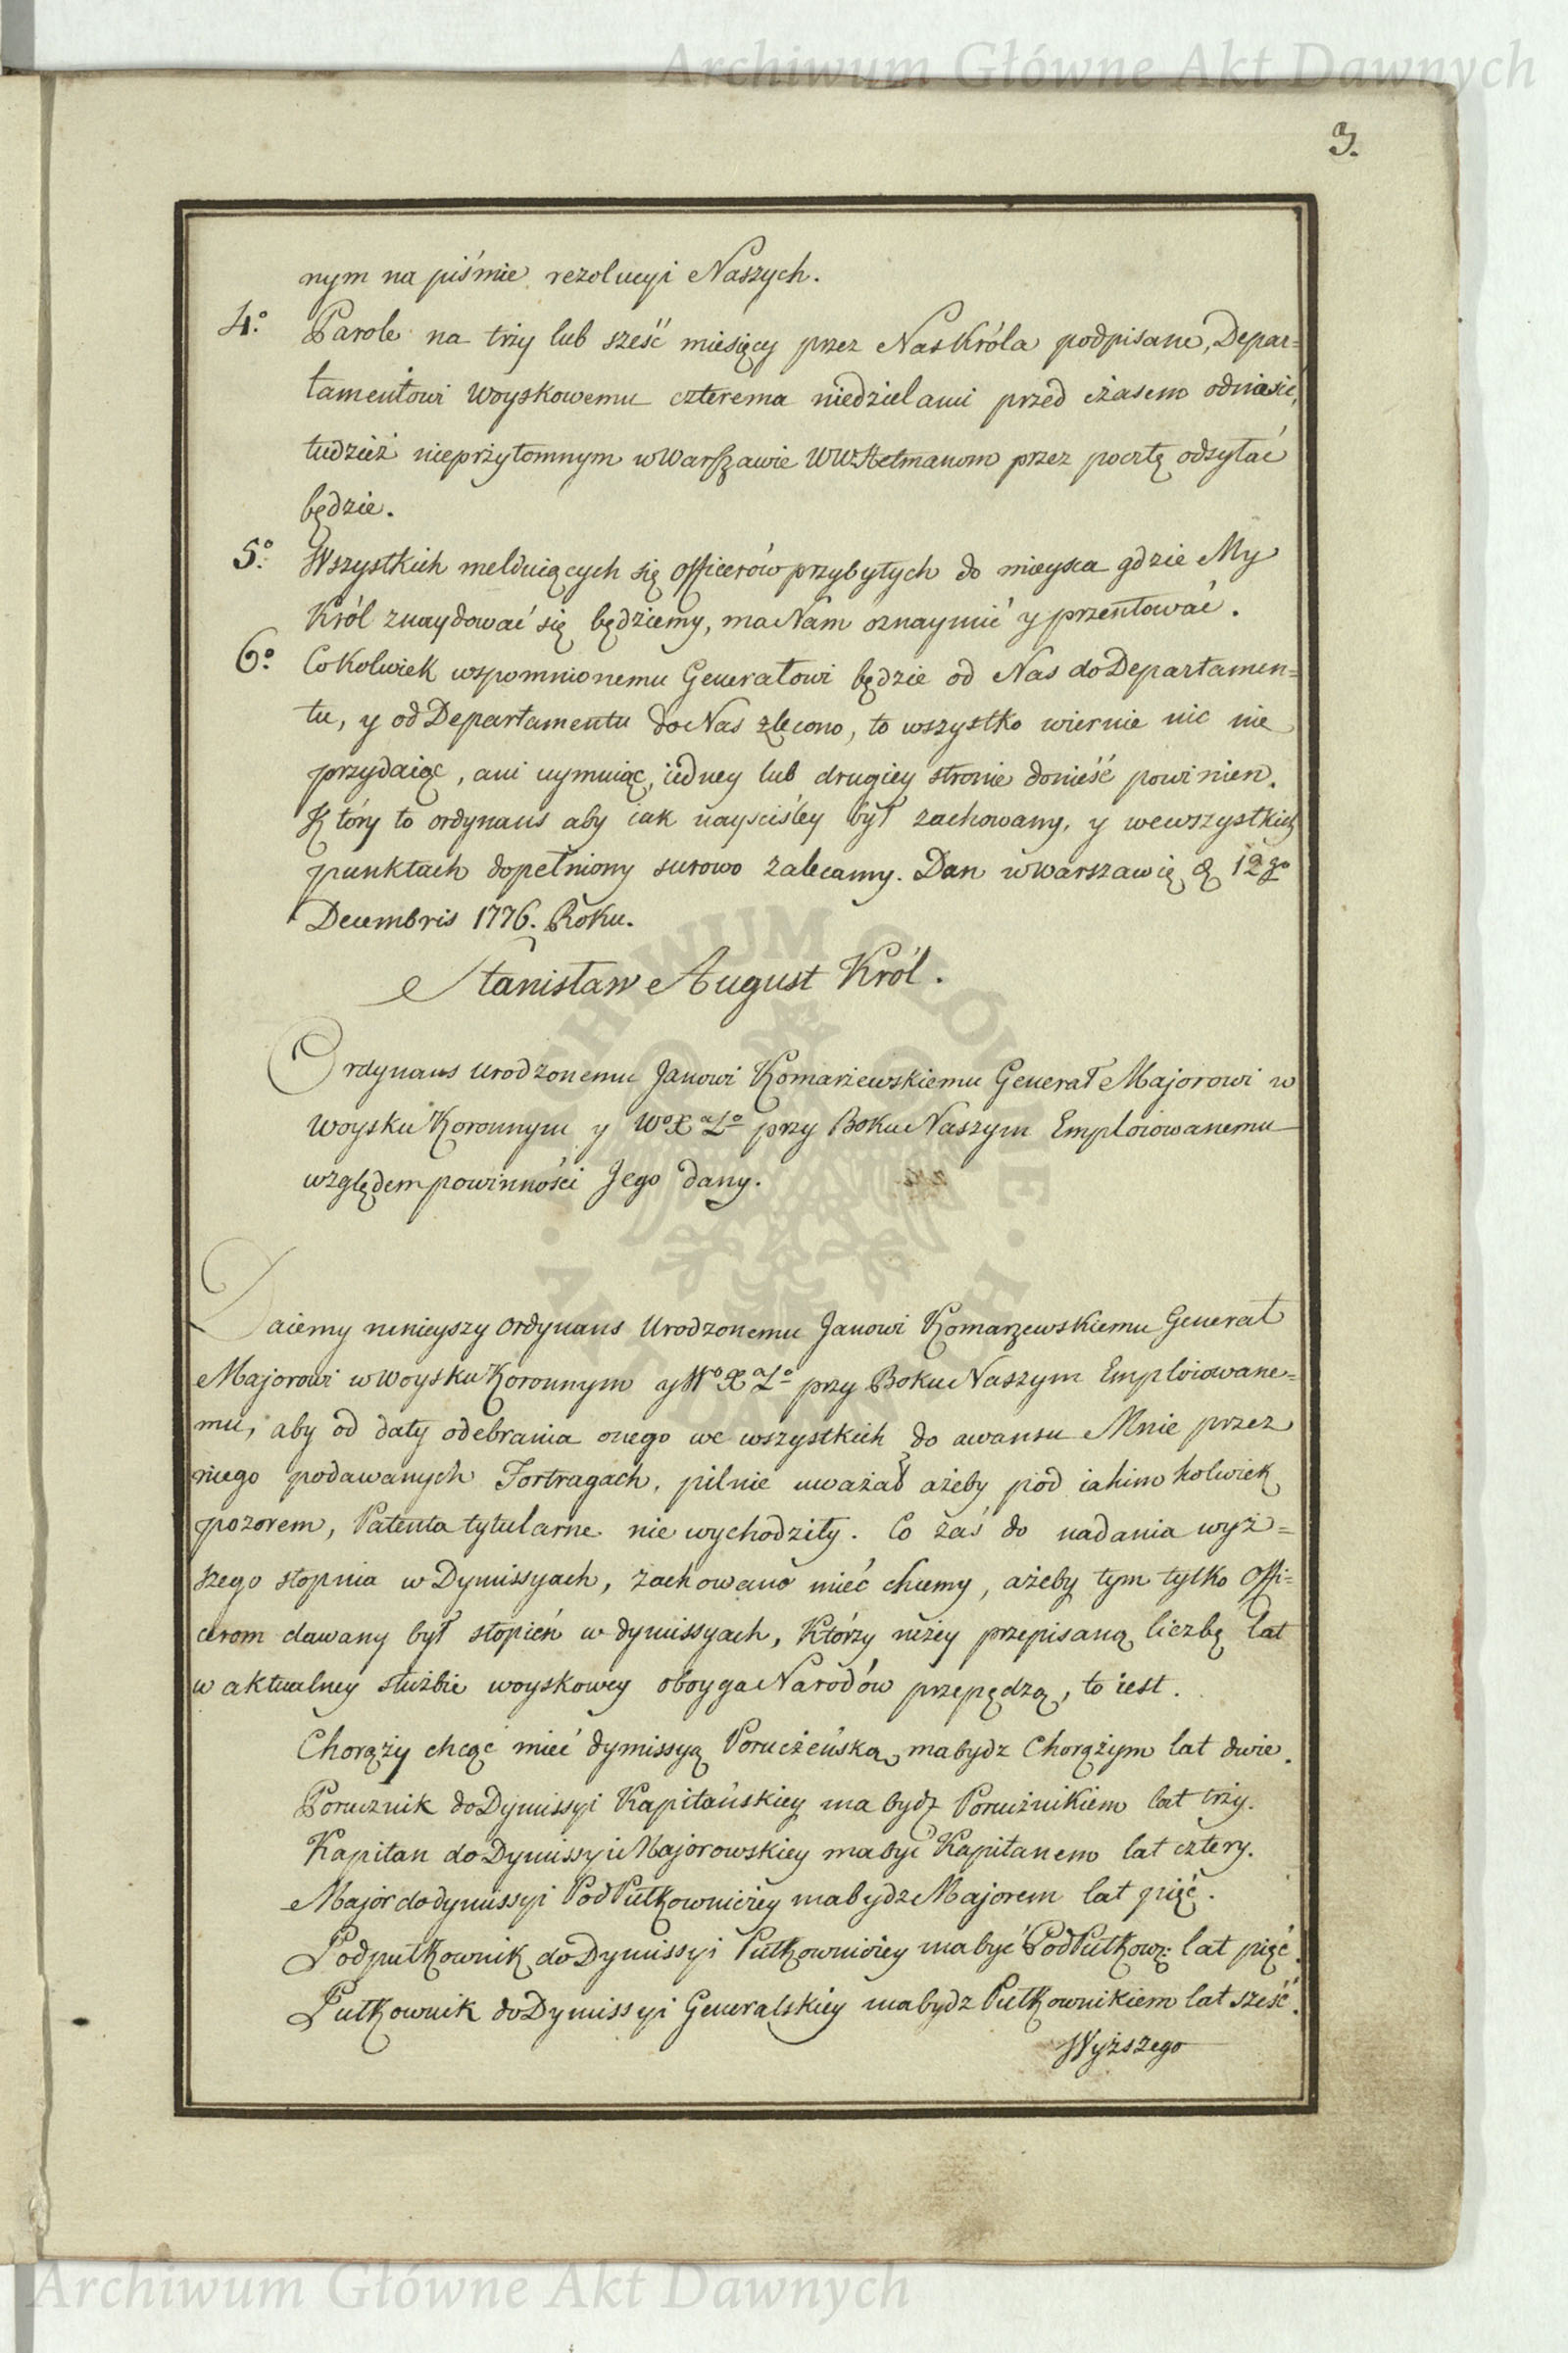 Archiwum Główne Akt Dawnych
3.
nym na piśmie rezolucyi Naszych.
4º Parole na trzy lub sześć miesięcy przez Nas Króla podpisane, Depar=
tamentowi Woyskowemu czterema niedzielami przed czasem odniesie,
tudzież nieprzytomnym w Warszawie WW Hetmanom przez pocztę odsyłać
będzie.
5º Wszystkich melduiących się officerów przybyłych do mieysca gdzie My
Król znaydować się będziemy, ma Nam oznaymić y przentować.
6º Cokolwiek wspomnionemu Generałowi będzie od Nas do Departamen=
tu, y od Departamentu do Nas zlecono, to wszystko wiernie nic nie
przydaiąc, ani uymuiąc, iedney lub drugiey stronie donieść powinien.
Który to ordynans aby iak nayściśley był zachowany, y we wszystkich
punktach dopełniony surowo zalecamy. Dan w Warszawie D 12go
Decembris 1776. Roku.
Stanisław August Król.
Ordynans Urodzonemu Janowi Komarzewskiemu Generał Majorowi w
Woysku Koronnym y Wº Xª Lº przy Boku Naszym Emploiowanemu
względem powinności Jego dany.
Daiemy ninieyszy Ordynans Urodzonemu Janowi Komarzewskiemu Generał
Majorowi w Woysku Koronnym y Wº Xª Lº przy Boku Naszym Emploiowane=
mu, aby od daty odebrania onego we wszystkich do awansu Mnie przez
niego podawanych Fortragach, pilnie uważał ażeby pod iakimkolwiek
pozorem, Patenta tytularne nie wychodziły. Co zaś do nadania wyż=
szego stopnia w Dymissyach, zachowano mieć chcemy, ażeby tym tylko Offi=
cerom dawany był stopień w dymissyach, Którzy niżey przepisaną liczbę lat
w aktualney służbie woyskowey oboyga Narodów przepędzą, to iest.
Chorąży chcąc mieć dymissyą Porucżeńską, ma bydz Chorążym lat dwie.
Porucznik do Dymissyi Kapitańskiey ma bydz Porucżnikiem lat trzy.
Kapitan do Dymissyi Majorowskiey ma być Kapitanem lat cztery.
Major do dymissyi PodPułkowniczey ma bydz Majorem lat pięć.
Podpułkownik do Dymissyi Pułkowniczey ma być PodPułkow: lat pięć.
Pułkownik do Dymissyi Generalskiey ma bydz Pułkownikiem lat sześć.
Wyższego
Archiwum Główne Akt Dawnych